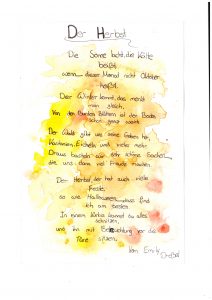 Der Herbst
Die Sonne lacht, die Kälte
beißt,
wenn dieser Monat nicht Oktober
heißt.
Der Winter kommt, das merkt
man gleich,
Von den Bunten Blättern ist der Boden
schon ganz weich
Der Wald gibt uns seine Gaben her,
Kastanien, Eicheln und vieles mehr
Draus basteln wir sehr schöne Sachen
die uns dann viel Freude machen.
Der Herbst der hat auch viele
Feste,
so wie Halloween, das find
ich am besten.
In einem Kürbis kannst du alles
schnitzen,
und ihn mit Beleuchtung vor die
Türe sitzen.
Von Emily